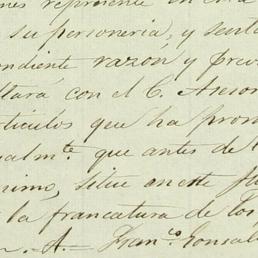 nes represente en
su personeria, y senta
ndiente razón y prev
ltará con el C. Aseson
rticulos que ha prom
ualmte. que antes de
nimo, situe en este
la francatura de los
A. Franco. Gonsal